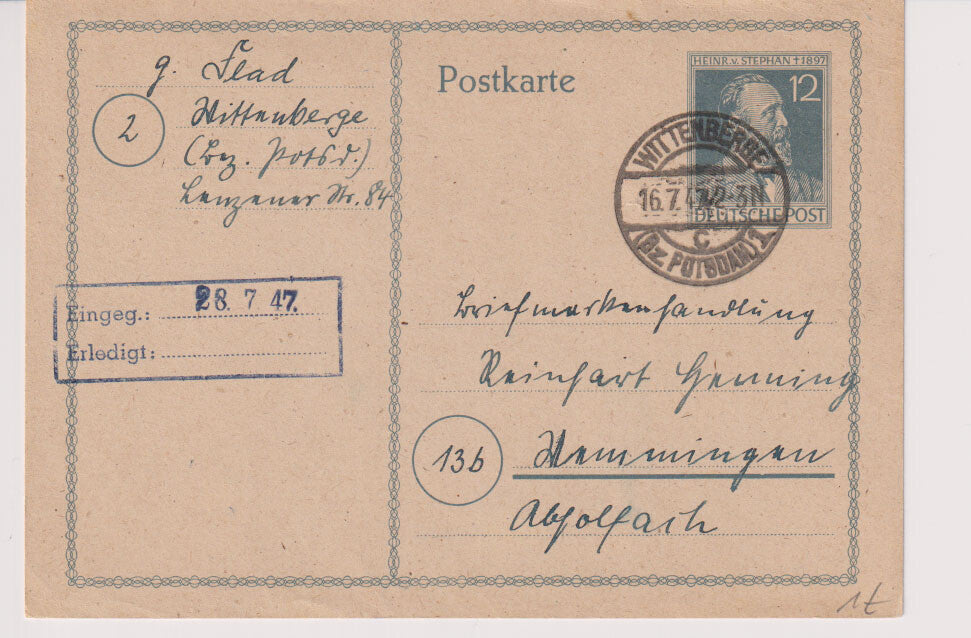 g. Flad
2
Wittenberge
(Bez. Potsd.)
Lenzener Str. 84
Postkarte
HEINR. v. STEPHAN † 1897
12
DEUTSCHE POST
WITTENBERGE
16.7.47.2-3N
c
(Bz POTSDAM) 1
Eingeg.: 28. 7 47.
Erledigt:
Briefmarkenhandlung
Reinhart Henning
13b
Memmingen
Abholfach